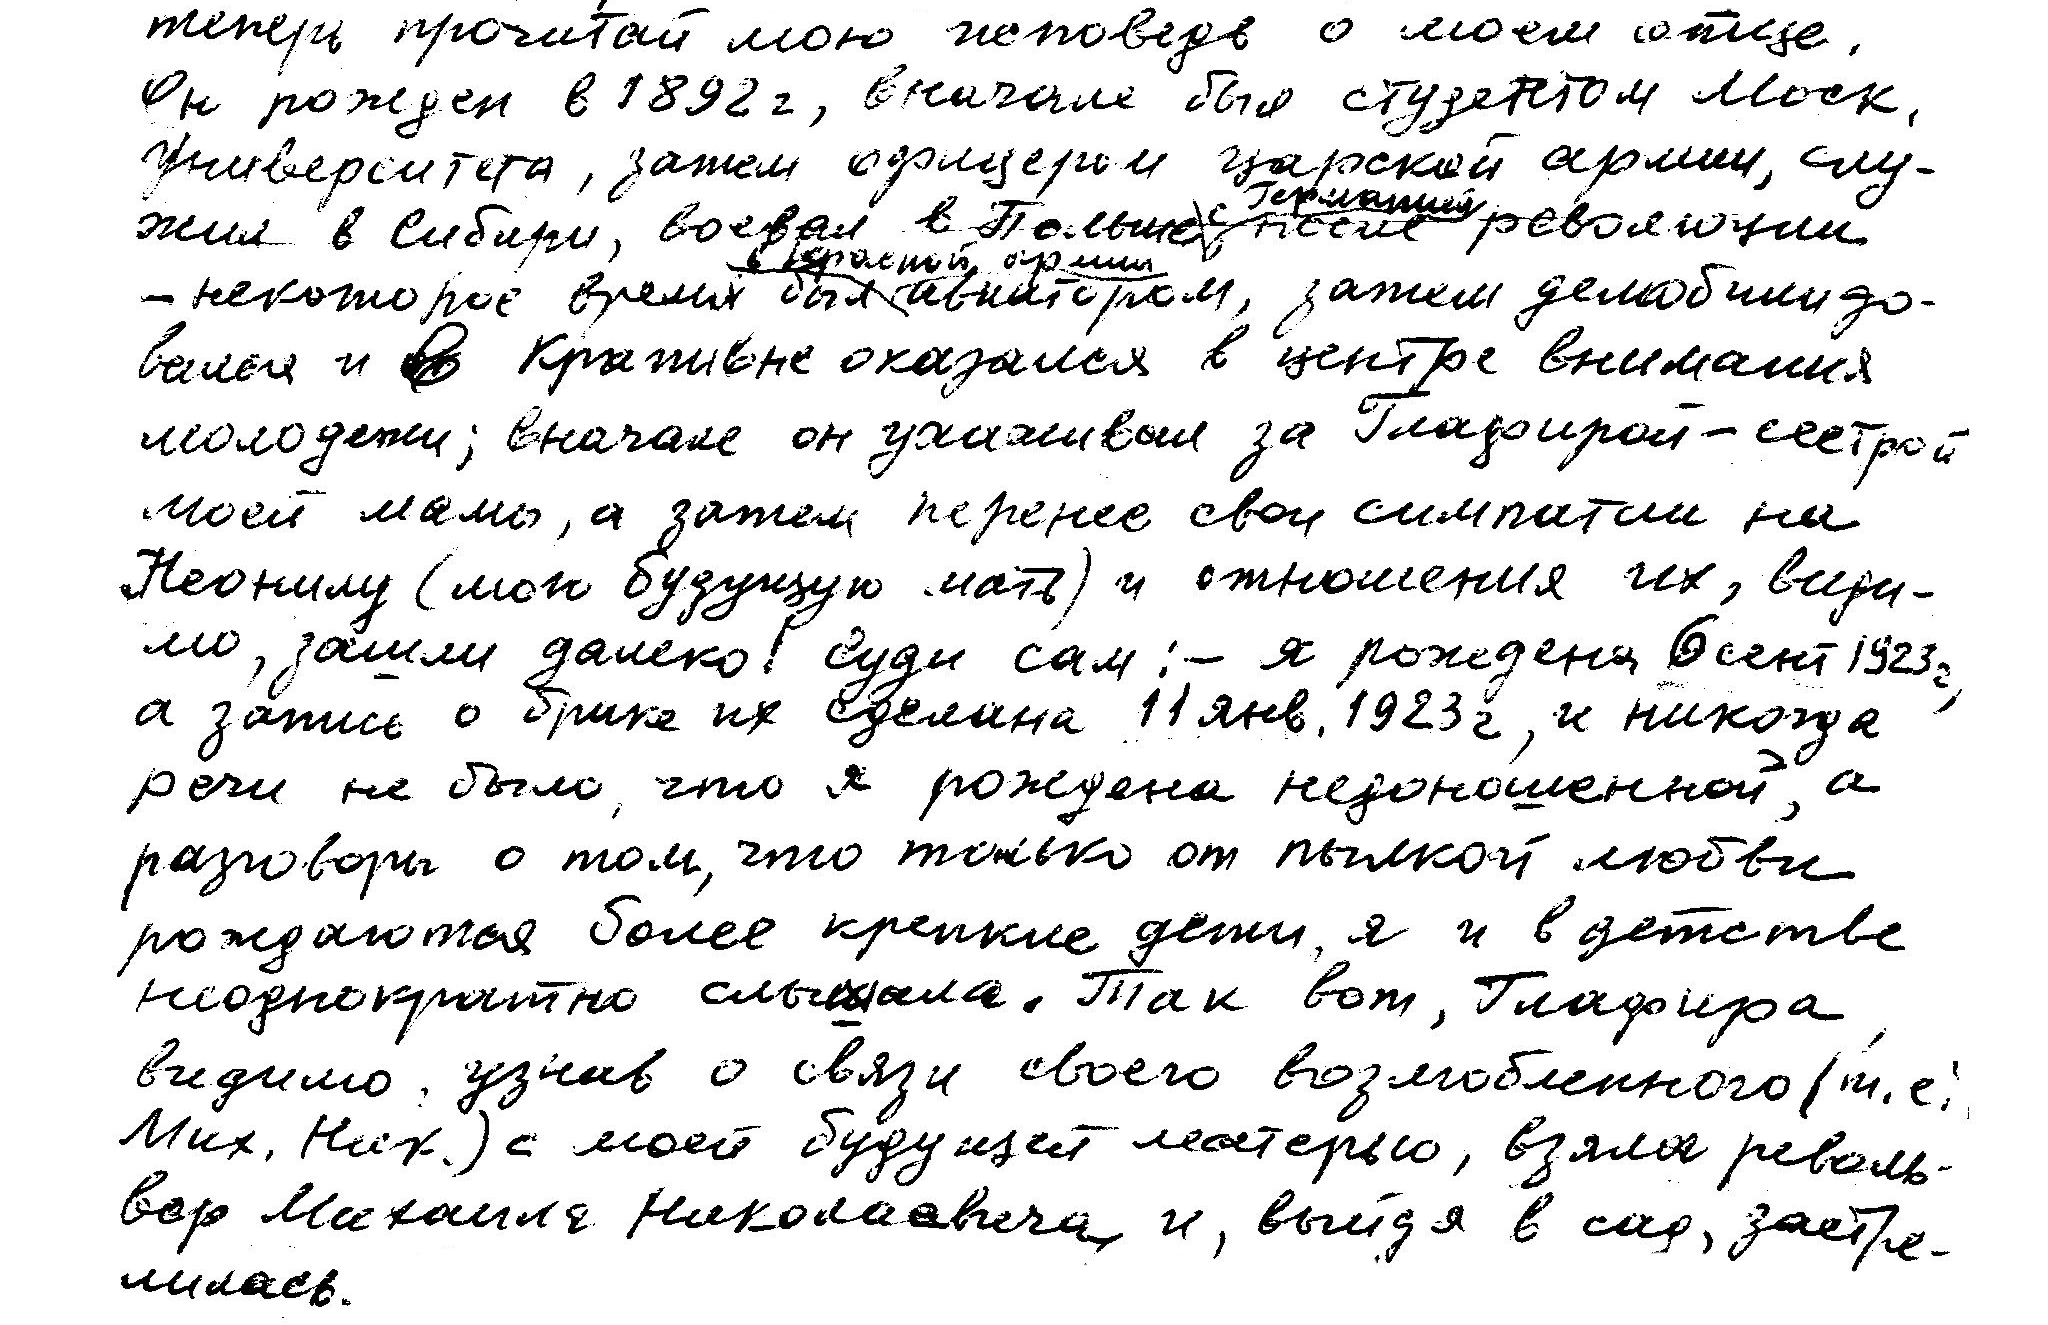 теперь прочитай мою исповедь о моем отце.
Он рожден в 1892 г, вначале был студентом Моск.
Университета, затем офицером царской армии, слу-
с Германией
жил в Сибири, воевал в Польше, после революции
в Красной армии
- некоторое время был авиатором, затем демобилизо-
вался и в Крапивне оказался в центре внимания
молодежи; вначале он ухаживал за Глафирой - сестрой
моей мамы, а затем перенес свои симпатии на
Неонилу (мою будущую мать) и отношения их, види-
мо, зашли далеко! Суди сам: - я рождена 6 сент 1923 г,
а запись о браке их сделана 11 янв. 1923 г, и никогда
речи не было, что я рождена недоношенной, а
разговоры о том, что только от пылкой любви
рождаются более крепкие дети, я и в детстве
неоднократно слышала. Так вот, Глафира,
видимо, узнав о связи своего возлюбленного (т.е.
Мих. Ник.) с моей будущей матерью, взяла револь-
вер Михаила Николаевича и, выйдя в сад, застре-
лилась.